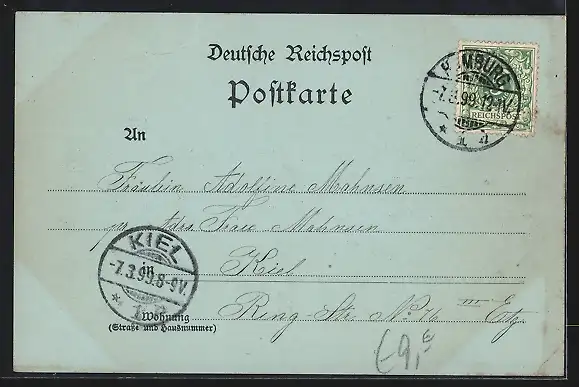 Deutsche Reichspost
Postkarte
HAMBURG
-7.3.99.12-1V.
* 1 n
REICHSPOST
An
Fräulein Adolfine Mahnsen
pr. Adr. Frau Mahnsen
KIEL
-7.3.99.8-9V.
* 1
in Kiel
Wohnung
(Straße und Hausnummer)
Ring-Str. No. 76 III Etg.
€9,-